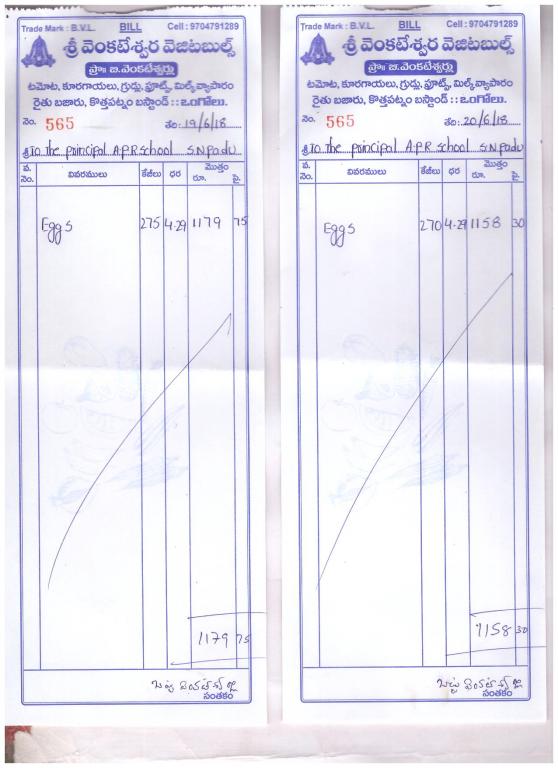 Trade Mark : B.V.L. BILL Cell : 9704791289
శ్రీ వెంకటేశ్వర వెజిటబుల్స్
ప్రొ॥ బి.వెంకటేశ్వర్లు
టమోట, కూరగాయలు, గ్రుడ్లు, ఫ్రూట్స్, మిల్క్ వ్యాపారం
రైతు బజారు, కొత్తపట్నం బస్టాండ్ :: ఒంగోలు.
నెం. 565 తేది: 19/6/18
శ్రీ To the principal A.P.R school S.N.Padu
వ. నెం. వివరములు కేజీలు ధర మొత్తం రూ. పై.
Eggs 275 4.29 1179 75
1179 75
సంతకం
Trade Mark : B.V.L. BILL Cell : 9704791289
శ్రీ వెంకటేశ్వర వెజిటబుల్స్
ప్రొ॥ బి.వెంకటేశ్వర్లు
టమోట, కూరగాయలు, గ్రుడ్లు, ఫ్రూట్స్, మిల్క్ వ్యాపారం
రైతు బజారు, కొత్తపట్నం బస్టాండ్ :: ఒంగోలు.
నెం. 565 తేది: 20/6/18
శ్రీ To the principal A.P.R school S.N.Padu
వ. నెం. వివరములు కేజీలు ధర మొత్తం రూ. పై.
Eggs 270 4.29 1158 30
1158 30
సంతకం